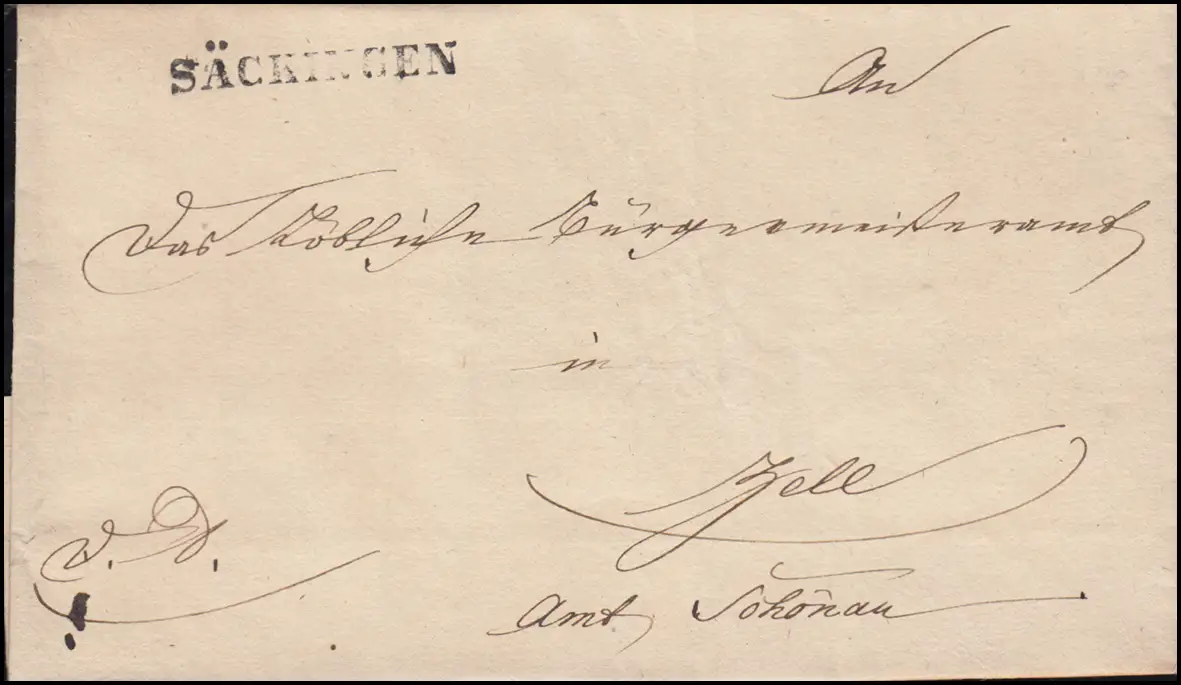 SÄCKINGEN
An
Das Löbliche Bürgermeisteramt
in
Zell
D. S.
Amt Schönau